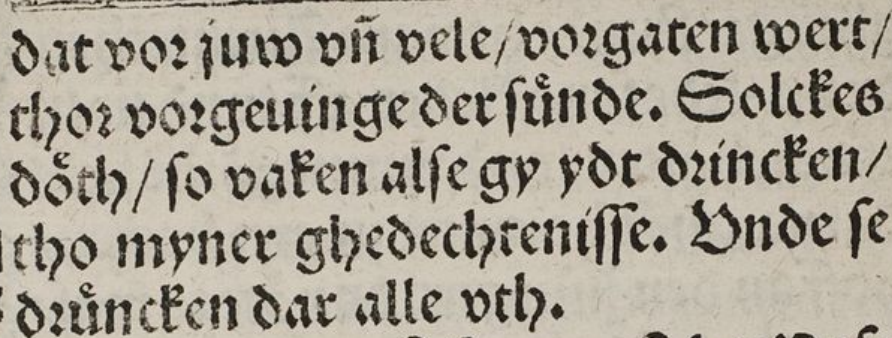 dat vor juw vñ vele/vorgaten wert/
thor vorgeuinge der sünde. Solckes
döth/ so vaken alse gy ydt drincken/
tho myner ghedechtenisse. Vnde se
drüncken dar alle vth.